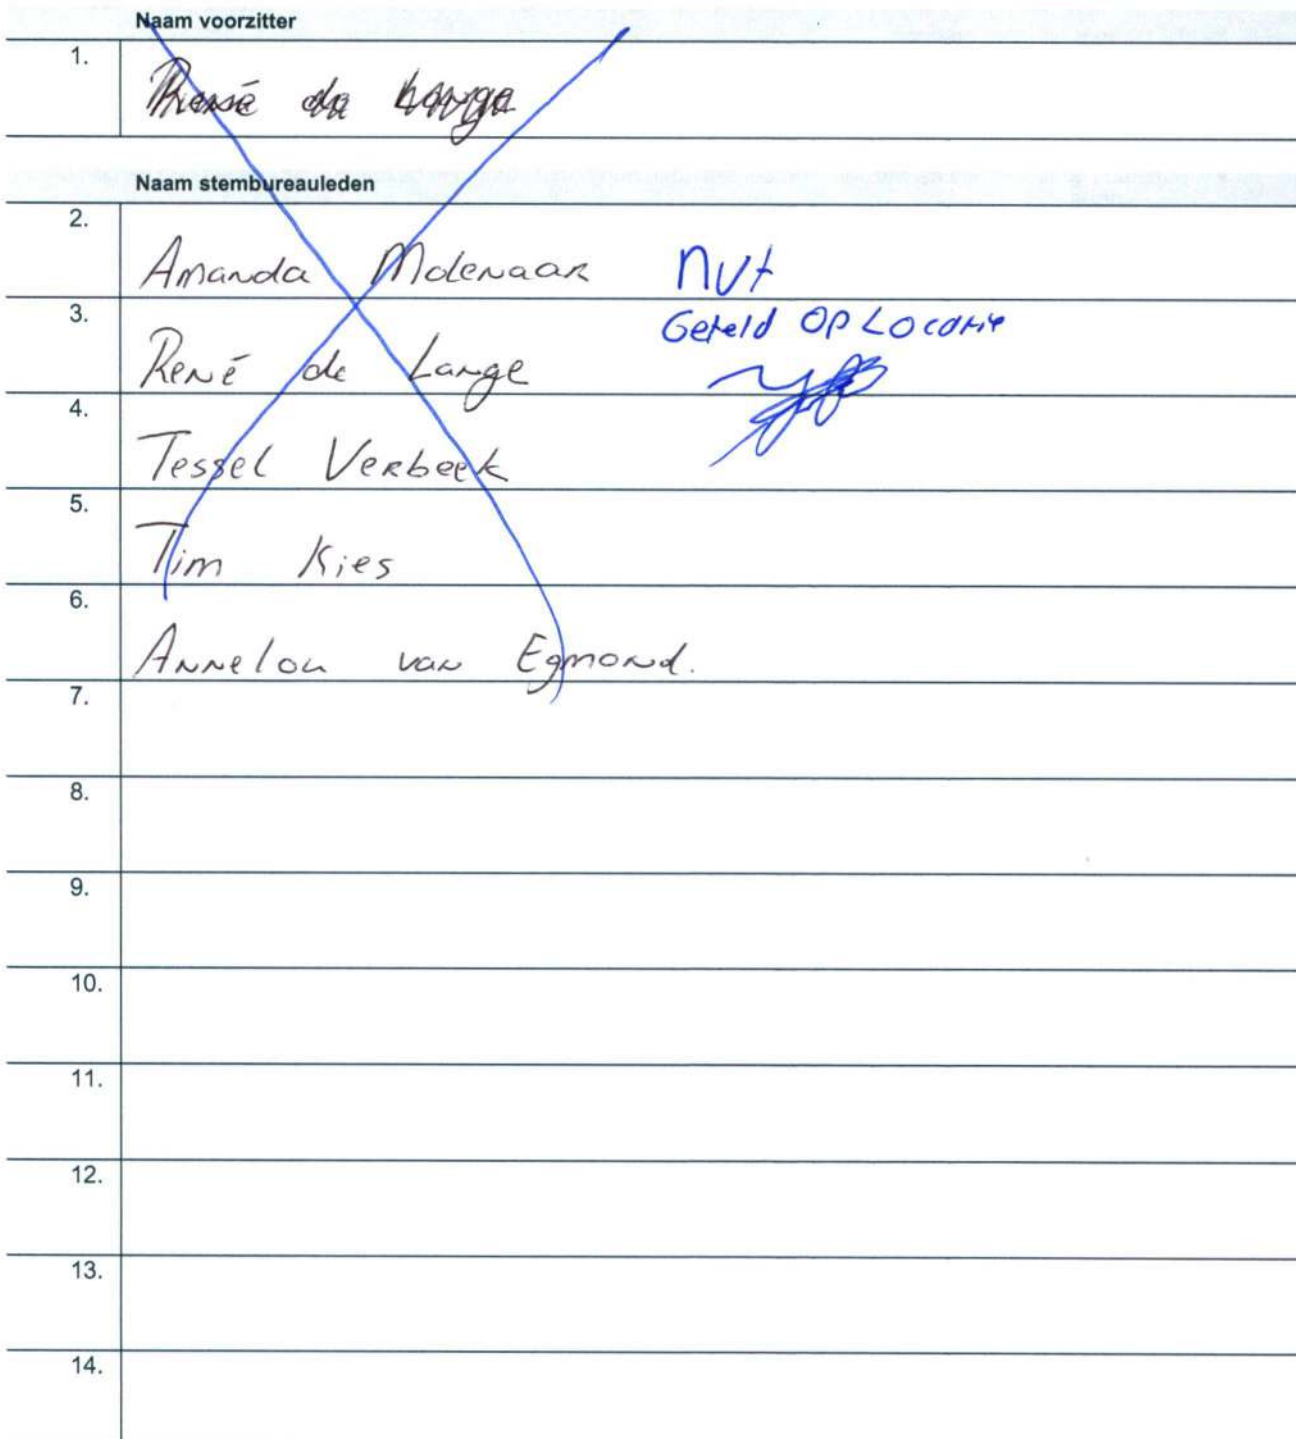 Naam voorzitter
1.
René de Lange
Naam stembureauleden
2.
Amanda Molenaar nvt
3.
Geteld op Locatie
René de Lange
4.
Tessel Verbeek
5.
Tim Kies
6.
Annelou van Egmond.
7.
8.
9.
10.
11.
12.
13.
14.